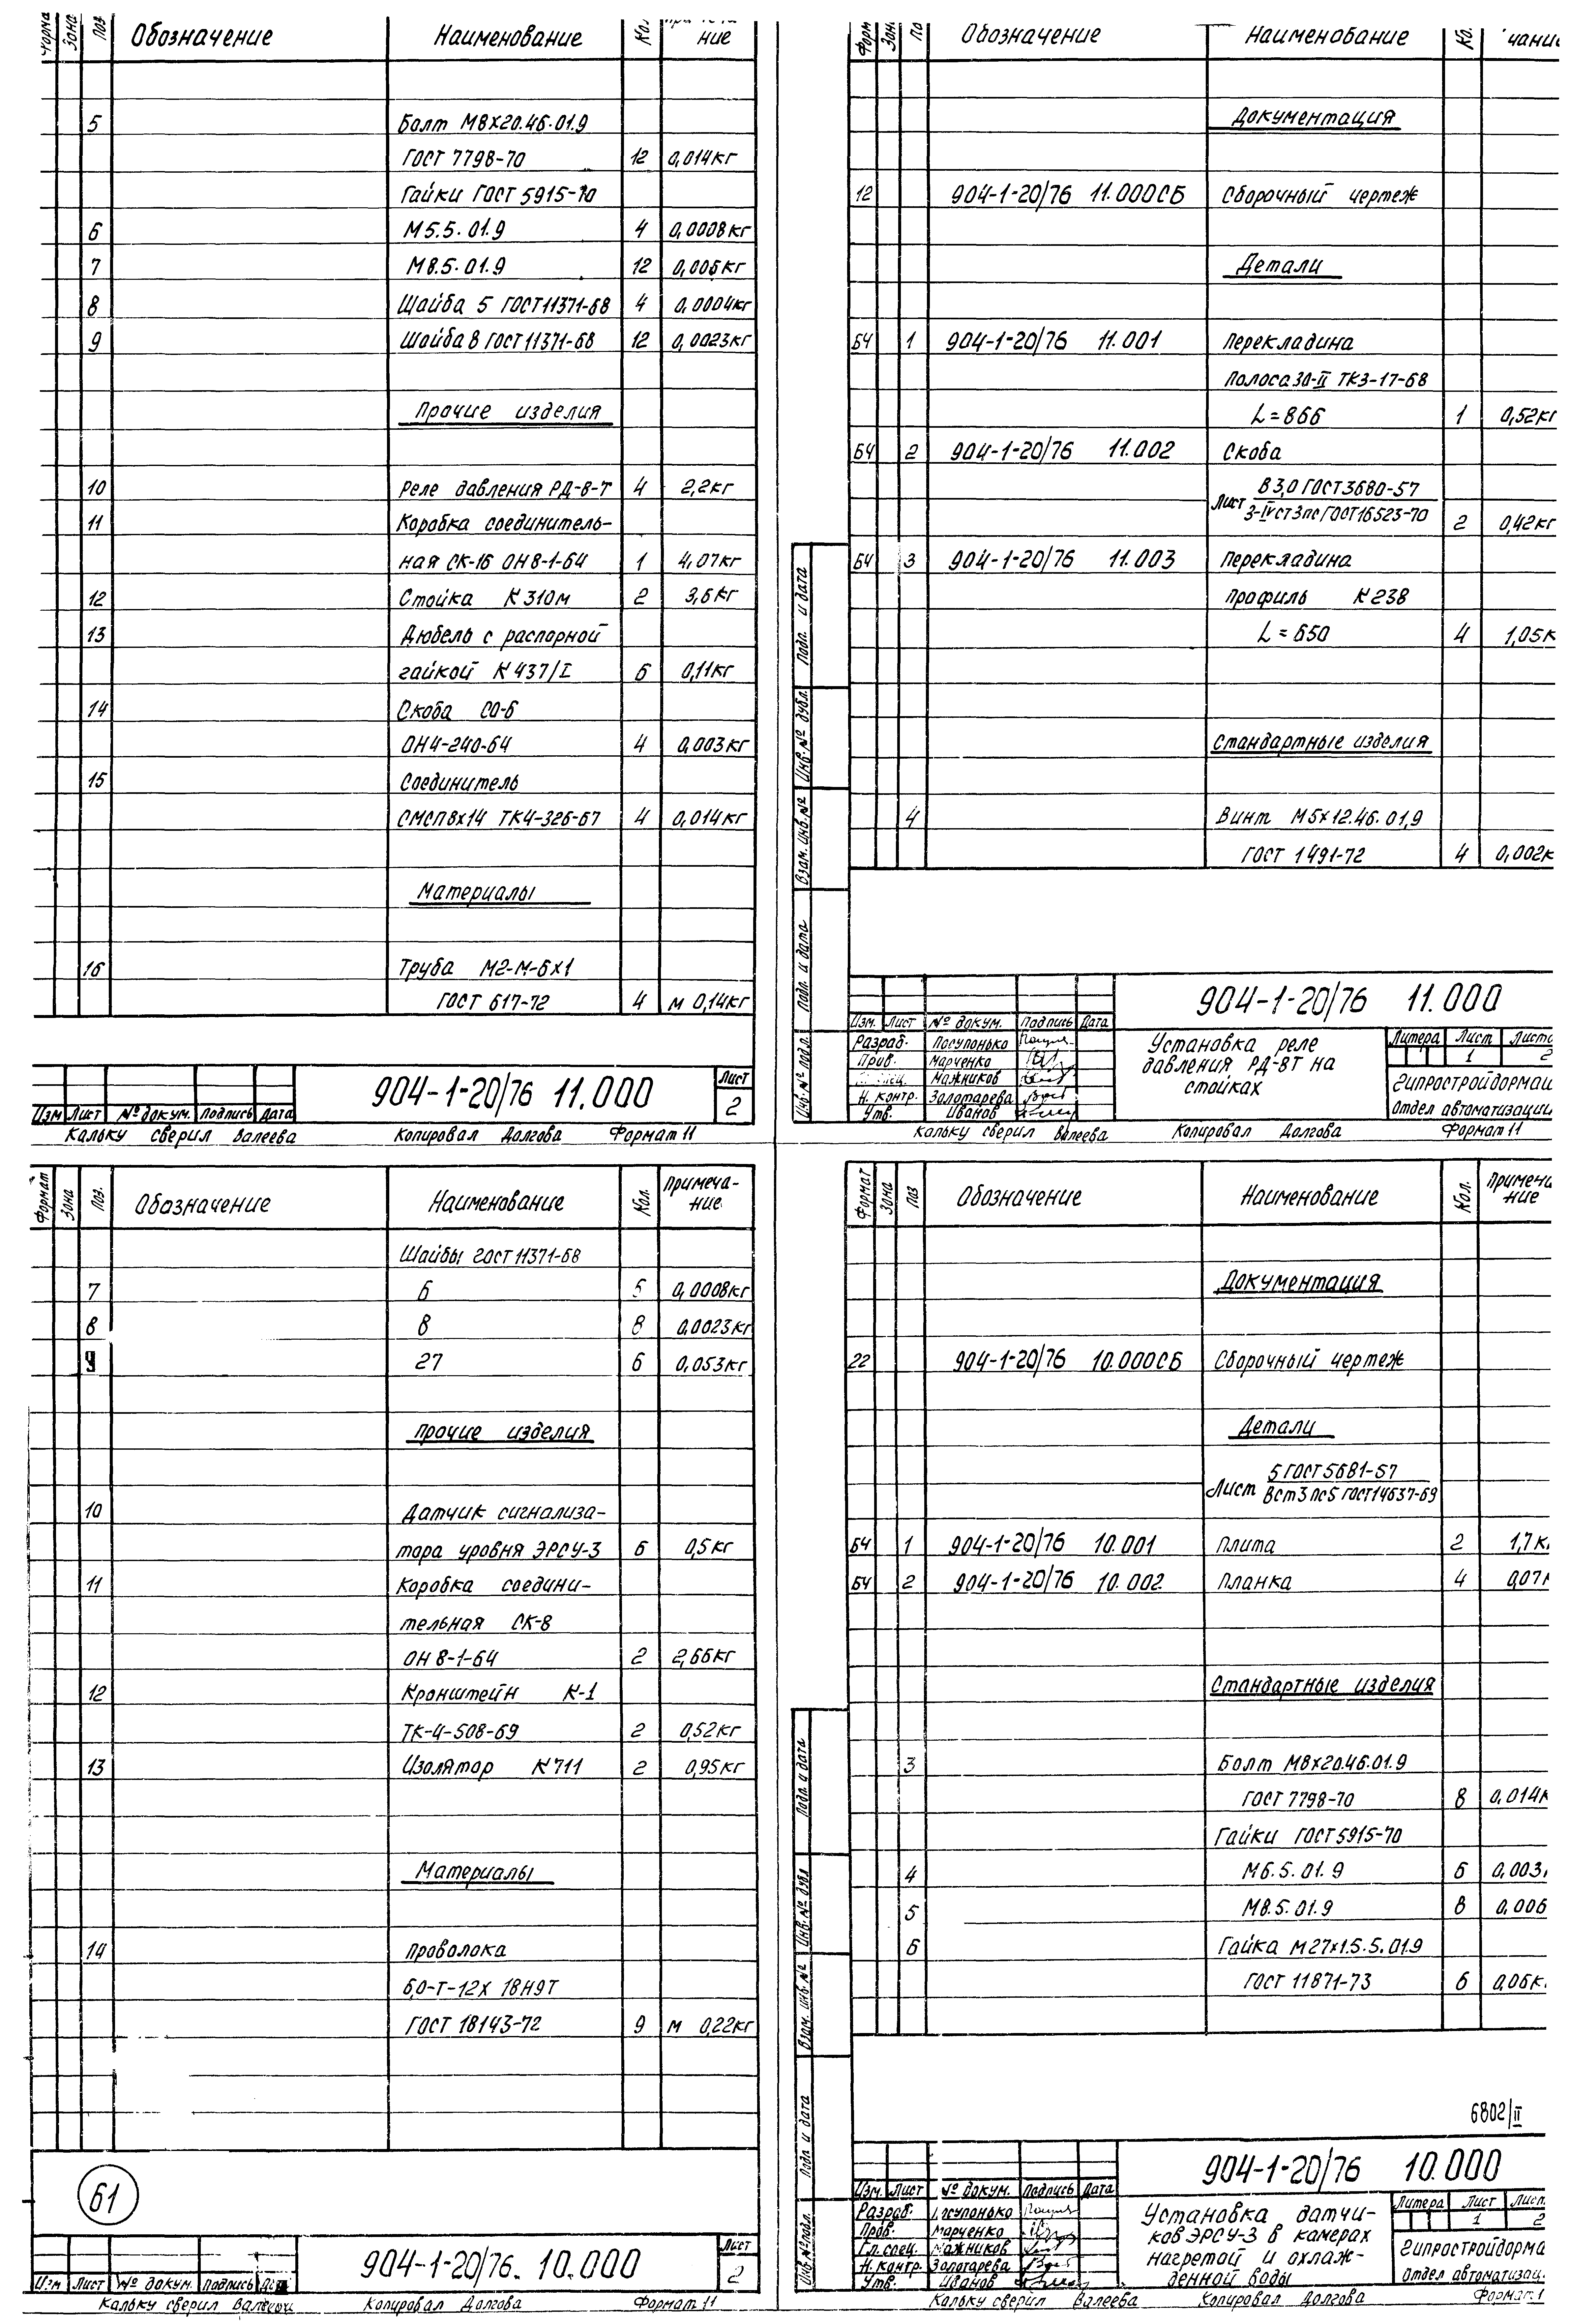 Форма Зона Поз Обозначение Наименование Кол. ние
5 Болт М8х20.46.01.9
ГОСТ 7798-70 12 0,014кг
Гайки ГОСТ 5915-70
6 М5.5.01.9 4 0,0008кг
7 М8.5.01.9 12 0,006кг
8 Шайба 5 ГОСТ11371-68 4 0,0004кг
9 Шайба 8 ГОСТ11371-68 12 0,0023кг
Прочие изделия
10 Реле давления РД-8-Т 4 2,2кг
11 Коробка соединитель-
ная СК-16 ОН8-1-64 1 4,07кг
12 Стойка К310м 2 3,6кг
13 Дюбель с распорной
гайкой К437/I 6 0,11кг
14 Скоба СО-6
ОН4-240-64 4 0,003кг
15 Соединитель
СМСП8х14 ТК4-326-67 4 0,014кг
Материалы
16 Труба М2-М-6х1
ГОСТ 617-72 4 м 0,14кг
904-1-20/76 11.000
Лист
2
Изм Лист № докум. Подпись Дата
Кальку сверил Валеева Копировал Долгова Формат 11
Форм Зон По Обозначение Наименование Ко. чание
Документация
12 904-1-20/76 11.000СБ Сборочный чертеж
Детали
БЧ 1 904-1-20/76 11.001 Перекладина
Полоса 30-II ТК3-17-68
L=866 1 0,52кг
БЧ 2 904-1-20/76 11.002 Скоба
Лист В 3,0 ГОСТ3680-57
3-IVСт3пс ГОСТ16523-70 2 0,42кг
БЧ 3 904-1-20/76 11.003 Перекладина
Профиль К238
L=650 4 1,05к
Стандартные изделия
4 Винт М5х12.46.01,9
ГОСТ 1491-72 4 0,002к
Подп. и дата
Инв. № дубл.
Взам. инв. №
Подп. и дата
Инв. № подл.
904-1-20/76 11.000
Изм. Лист № докум. Подпись Дата
Разраб. Посупонько
Пров. Марченко
Мажников
Н. контр. Золотарева
Утв. Иванов
Установка реле
давления РД-8Т на
стойках
Литера Лист Листо
1 2
Гипростройдормаш
Отдел автоматизации
Кальку сверил Валеева Копировал Долгова Формат 11
Формат Зона Поз. Обозначение Наименование Кол. Примеча-
ние
Шайбы ГОСТ11371-68
7 6 6 0,0008кг
8 8 8 0,0023кг
9 27 6 0,053кг
Прочие изделия
10 Датчик сигнализа-
тора уровня ЭРСУ-3 6 0,5кг
11 Коробка соедини-
тельная СК-8
ОН 8-1-64 2 2,66кг
12 Кронштейн К-1
ТК-4-508-69 2 0,52кг
13 Изолятор К711 2 0,95кг
Материалы
14 Проволока
6,0-Т-12х 18Н9Т
ГОСТ 18143-72 9 м 0,22кг
61
904-1-20/76. 10.000
Лист
2
Изм Лист № докум. Подпись Дата
Кальку сверил Валеева Копировал Долгова Формат 11
Формат Зона Поз Обозначение Наименование Кол. Примеча
ние
Документация
22 904-1-20/76 10.000СБ Сборочный чертеж
Детали
Лист 5 ГОСТ5681-57
ВСт3пс5 ГОСТ14637-69
БЧ 1 904-1-20/76 10.001 Плита 2 1,7к
БЧ 2 904-1-20/76 10.002 Планка 4 0,07к
Стандартные изделия
3 Болт М8х20.46.01.9
ГОСТ 7798-70 8 0,014к
Гайки ГОСТ5915-70
4 М6.5.01.9 6 0,003
5 М8.5.01.9 8 0,006
6 Гайка М27х1.5.5.01.9
ГОСТ 11871-73 6 0,06к
6802/II
Подп. и дата
Инв. № дубл
Взам. инв. №
Подп. и дата
Инв. № подл.
904-1-20/76 10.000
Изм. Лист № докум. Подпись Дата
Разраб. Посупонько
Пров. Марченко
Гл. спец. Мажников
Н. контр. Золотарева
Утв. Иванов
Установка датчи-
ков ЭРСУ-3 в камерах
нагретой и охлаж-
денной воды
Литера Лист Лист
1 2
Гипростройдорма
Отдел автоматизац.
Кальку сверил Валеева Копировал Долгова Формат 1